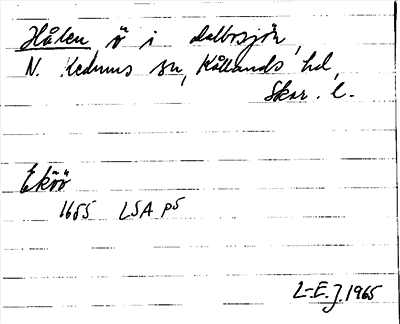 Hålen, ö i Dalbosjön,
N. Kedums sn, Kållands hd,
Skar. l.
Eköö
1655 LSA P5
L-E. J. 1965